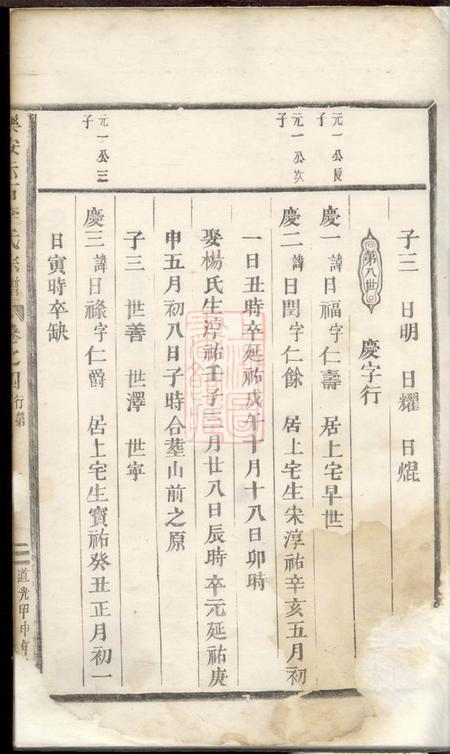 元一公長子
元一公次子
元一公三子
子三 日明 日耀 日焜
第八世
慶字行
慶一諱日福字仁壽 居上宅早世
慶二諱日閏字仁餘 居上宅生宋淳祐辛亥五月初
一日丑時卒延祐戊午十月十八日卯時
娶楊氏生淳祐壬子三月廿八日辰時卒元延祐庚
申五月初八日子時合塟山前之原
子三 世善 世澤 世寧
慶三諱日祿字仁爵 居上宅生寶祐癸丑正月初一
日寅時卒缺
氏宗譜 卷之四 行第
道光甲申年